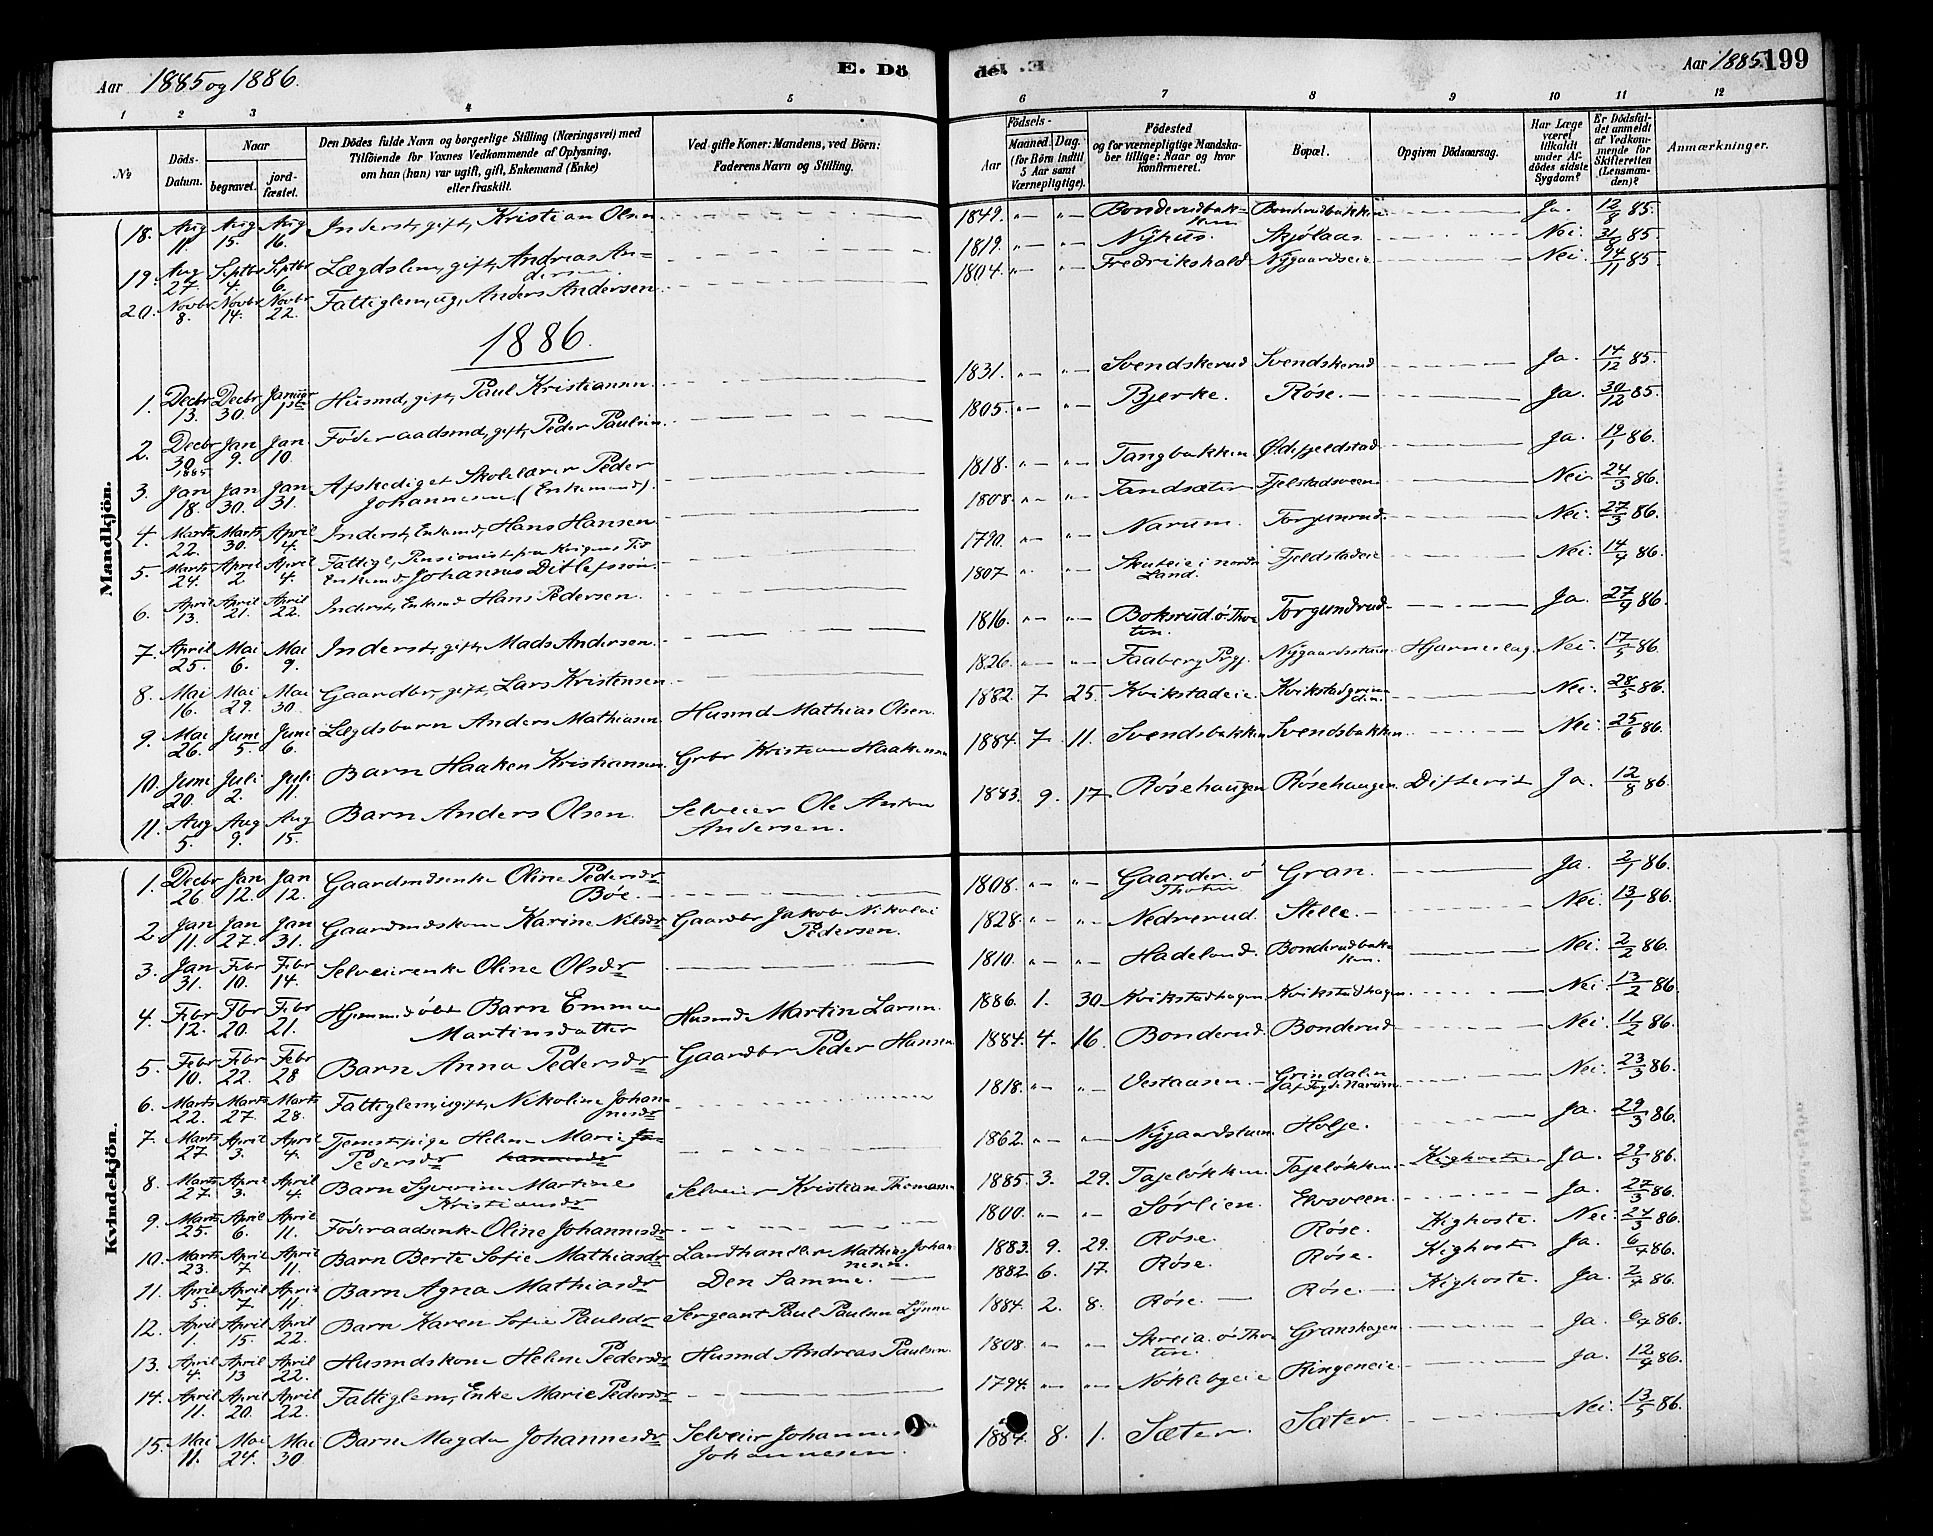 Aar 1885 og 1886.
E. Dö
de. E.
Aar 1885. 199
1 2 3 4 5 6 7 8 9 10 11 12
№
Döds-Datum.
Naar
begravet.
jordfæstet.
Den Dödes fulde Navn og borgerlige Stilling (Næringsvei) med
Tilföiende for Voxnes Vedkommende af Oplysning,
om han (hun) var ugift, gift, Enkemand (Enke)
eller fraskilt.
Ved gifte Koner: Mandens, ved Börn:
Faderens Navn og Stilling.
Födsels-
Aar
Maaned. Dag.
(for Börn indtil
5 Aar samt
Værnepligtige).
Födested
og for værnepligtige Mandskaber tillige: Naar og hvor
konfirmeret.
Bopæl.
Opgiven Dödsaarsag.
Har Læge været tilkaldt under Afdödes sidste Sygdom?
Er Dödsfaldet anmeldt af Vedkommende for Skifteretten (Lensmanden)?
Anmærkninger.
Mandkjön.
18. Aug 11. Aug 15. Aug 16. Inderst, gift, Kristian Olsen 1849. Bonderudbakken Bonderudbakken Ja. 12/8 85.
19. Aug 27. Septbr 4. Septbr 6. Lægdslem, gift, Andreas Andersen 1819. Nyhus. Skjölaas Nei. 31/8 85.
20. Novbr 8. Novbr 14. Novbr 22. Fattiglem, ug, Anders Andersen 1804. Fredrikshald Nygaardseie Nei. 11 85.
1886.
1. Decbr 13. Decbr 30. Januar 1ste Husmd, gift, Paul Kristiansen 1831. Svendskerud Svendskerud Ja. 14/12 85.
2. Decbr 30. 1885 Jan 9. Jan 10. Föderaadsmd, gift, Peder Paulsen 1805. Bjerke. Röse. Ja. 30/12 85.
3. Jan 18. Jan 30. Jan 31. Afskediget Skolelærer Peder Johannesen (Enkemand). 1818. Tangbakken Ödefjeldstad Ja. 19/1 86.
4. Marts 22. Marts 30. April 4. Inderst, Enkemd, Hans Hansen 1808. Tandsæter Fjelstadsveen Nei. 24/3 86.
5. Marts 24. April 2. April 4. Fattigl, Pensionist fra Krigens Tid Enkemd, Johannes Ditlefssön. 1790. Narum. Torgunrud. Nei. 27/3 86.
6. April 13. April 21. April 22. Inderst, Enkemd Hans Pedersen. 1807 Skuteie i nordre Land. Fjeldstadeie Nei. 14/4 86.
7. April 25. Mai 6. Mai 9. Inderst, gift, Mads Andersen. 1816. Boksrud ö. Thoten. Torgundrud. Ja. 27/4 86.
8. Mai 16. Mai 29. Mai 30. Gaardbr, gift, Lars Kristensen 1826. Faaberg Prgj. Nygaardsstuen Hjerneslag. Nei. 17/5 86.
9. Mai 26. Juni 5. Juni 6. Lægdsbarn Anders Mathiasen Husmd Mathias Olsen. 1882. 7 25. Kvikstadeie. Nei. 28/5 86.
10. Juni 20. Juli 2. Juli 11. Barn Haaken Kristiansen Grbr Kristian Haakensen 1884. 7. 11. Svendsbakken Svendsbakken Nei. 25/6 86.
11. Aug 5. Aug 9. Aug 15. Barn Anders Olsen. Selveier Ole Anton Andersen. 1883. 9. 17. Rösehaugen Rösehaugen. Difterit Ja. 12/8 86.
Kvindekjön.
1. Decbr 26 Jan 12. Jan 12. Gaardmdsenke Oline Pedersdr Böe. 1808. Gaarder ö Thoten Gran. Ja. 2/1 86.
2. Jan 11. Jan 27. Jan 31. Gaardmdskone Karine Nilsdr Gaardbr Jakob Nikolai Pedersen. 1828. Nedrerud. Stelle. Nei. 13/1 86.
3. Jan 31. Febr 10. Febr 14. Selveierenke Oline Olsdr 1810. Hadeland. Bonderudbakken. Nei. 2/2 86.
4. Febr 12. Febr 20. Febr 21. Hjemmedöbt Barn Emma Martinsdatter Husmd Martin Larsen. 1886. 1. 30. Kvikstadhagen Kvikstadhagen Nei. 13/2 86.
5. Febr 10. Febr 22. Febr 28 Barn Anna Pedersdr Gaardbr Peder Hansen. 1884. 4. 16. Bonderud. Bonderud Nei. 11/2 86.
6. Marts 22. Marts 27. Marts 28. Fattiglem, ugift, Nikoline Johannesdr 1818. Vestaasen Grindalen af Lægd Narum Nei. 23/3 86.
7. Marts 27 April 3. April 4. Tjenestpige Helene Marie Johannesdr Pedersdr 1862. Nygaardstuen Holje. Ja. 29/3 86.
8. Marts 27. April 3. April 4. Barn Syverine Martine Kristiansdr Selveier Kristian Thomassen 1885. 3. 29. Tajelökken. Tajelökken Kighoste Ja. 29/3 86.
9. Marts 25. April 6. April 11. Föderaadsenke Oline Johannesdr 1800. Sörlien. Elvsveen. Ja. 27/3 86.
10. Marts 23. April 7. April 11. Barn Berte Sofie Mathiasdr Landhandler Mathias Johannesen. 1883. 9. 29. Röse. Röse. Kighoste. Nei. 24/3 86.
11. April 5. April 7. April 11. Barn Agna Mathiasdr Den Samme. 1882 6. 17. Röse. Röse. Kighoste Ja. 6/4 86.
12. April 1. April 15. April 22. Barn Karen Sofie Paulsdr Sergeant Paul Paulsen Lynne 1884. 2. 8. Röse. Röse. Kighoste. Ja. 2/4 86.
13. April 4. April 13 April 22. Husmdskone Helene Pedersdr Husmd Andreas Paulsen. 1808. Skreia ö Thoten. Granshagen Ja. 6/4 86.
14. April 11. April 20. April 22. Fattiglem, Enke Marie Pedersdr 1794. Nöklebyeie Ringeneie Ja. 12/4 86.
15. Mai 11. Mai 24. Mai 30 Barn Magda Johannesdr Selveier Johannes Johannesen. 1884. 8. 1. Sæter. Sæter. Nei. 13/5 86.